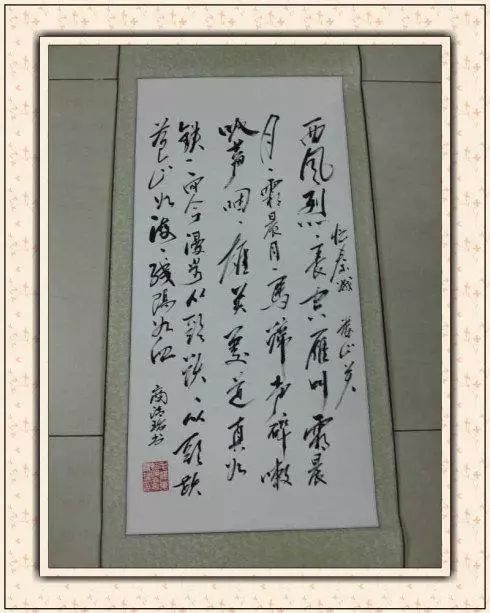 忆秦娥 娄山关
西风烈、長空雁叫霜晨
月、霜晨月、馬蹄声碎喇
叭声咽、雄关漫道真如
铁、而今迈步从頭越、从頭越
苍山如海、残陽如血